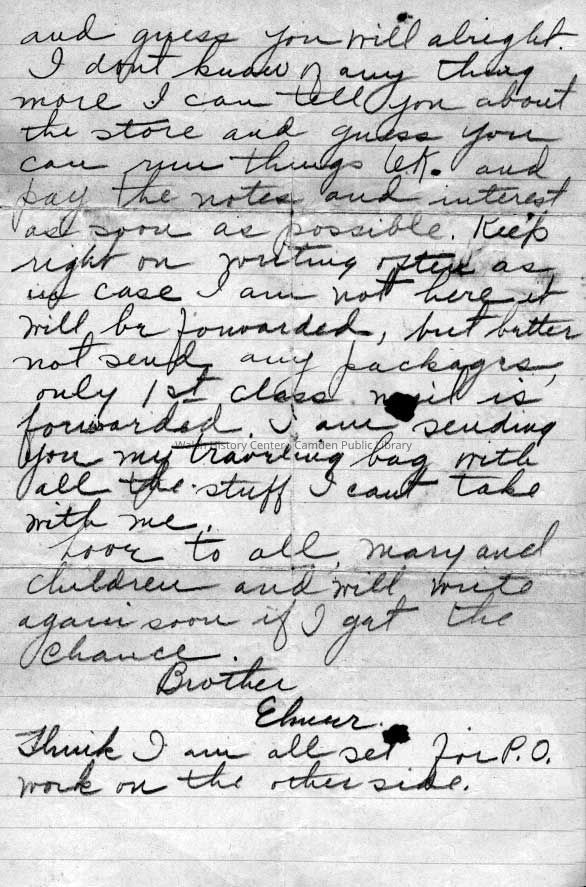 and guess you will alright.
I dont know of any thing
more I can tell you about
the store and guess you
can run things OK. and
pay the notes and interest
as soon as possible. Keep
right on writing often as
in case I am not here it
will be forwarded, but better
not send any packages,
only 1st class mail is
forwarded. I am sending
Walsh History Center, Camden Public Library
you my traveling bag with
all the stuff I cant take
with me.
Love to all, Mary and
children and will write
again soon if I get the
chance.
Brother
Elmer.
Think I am all set for P.O.
work on the other side.